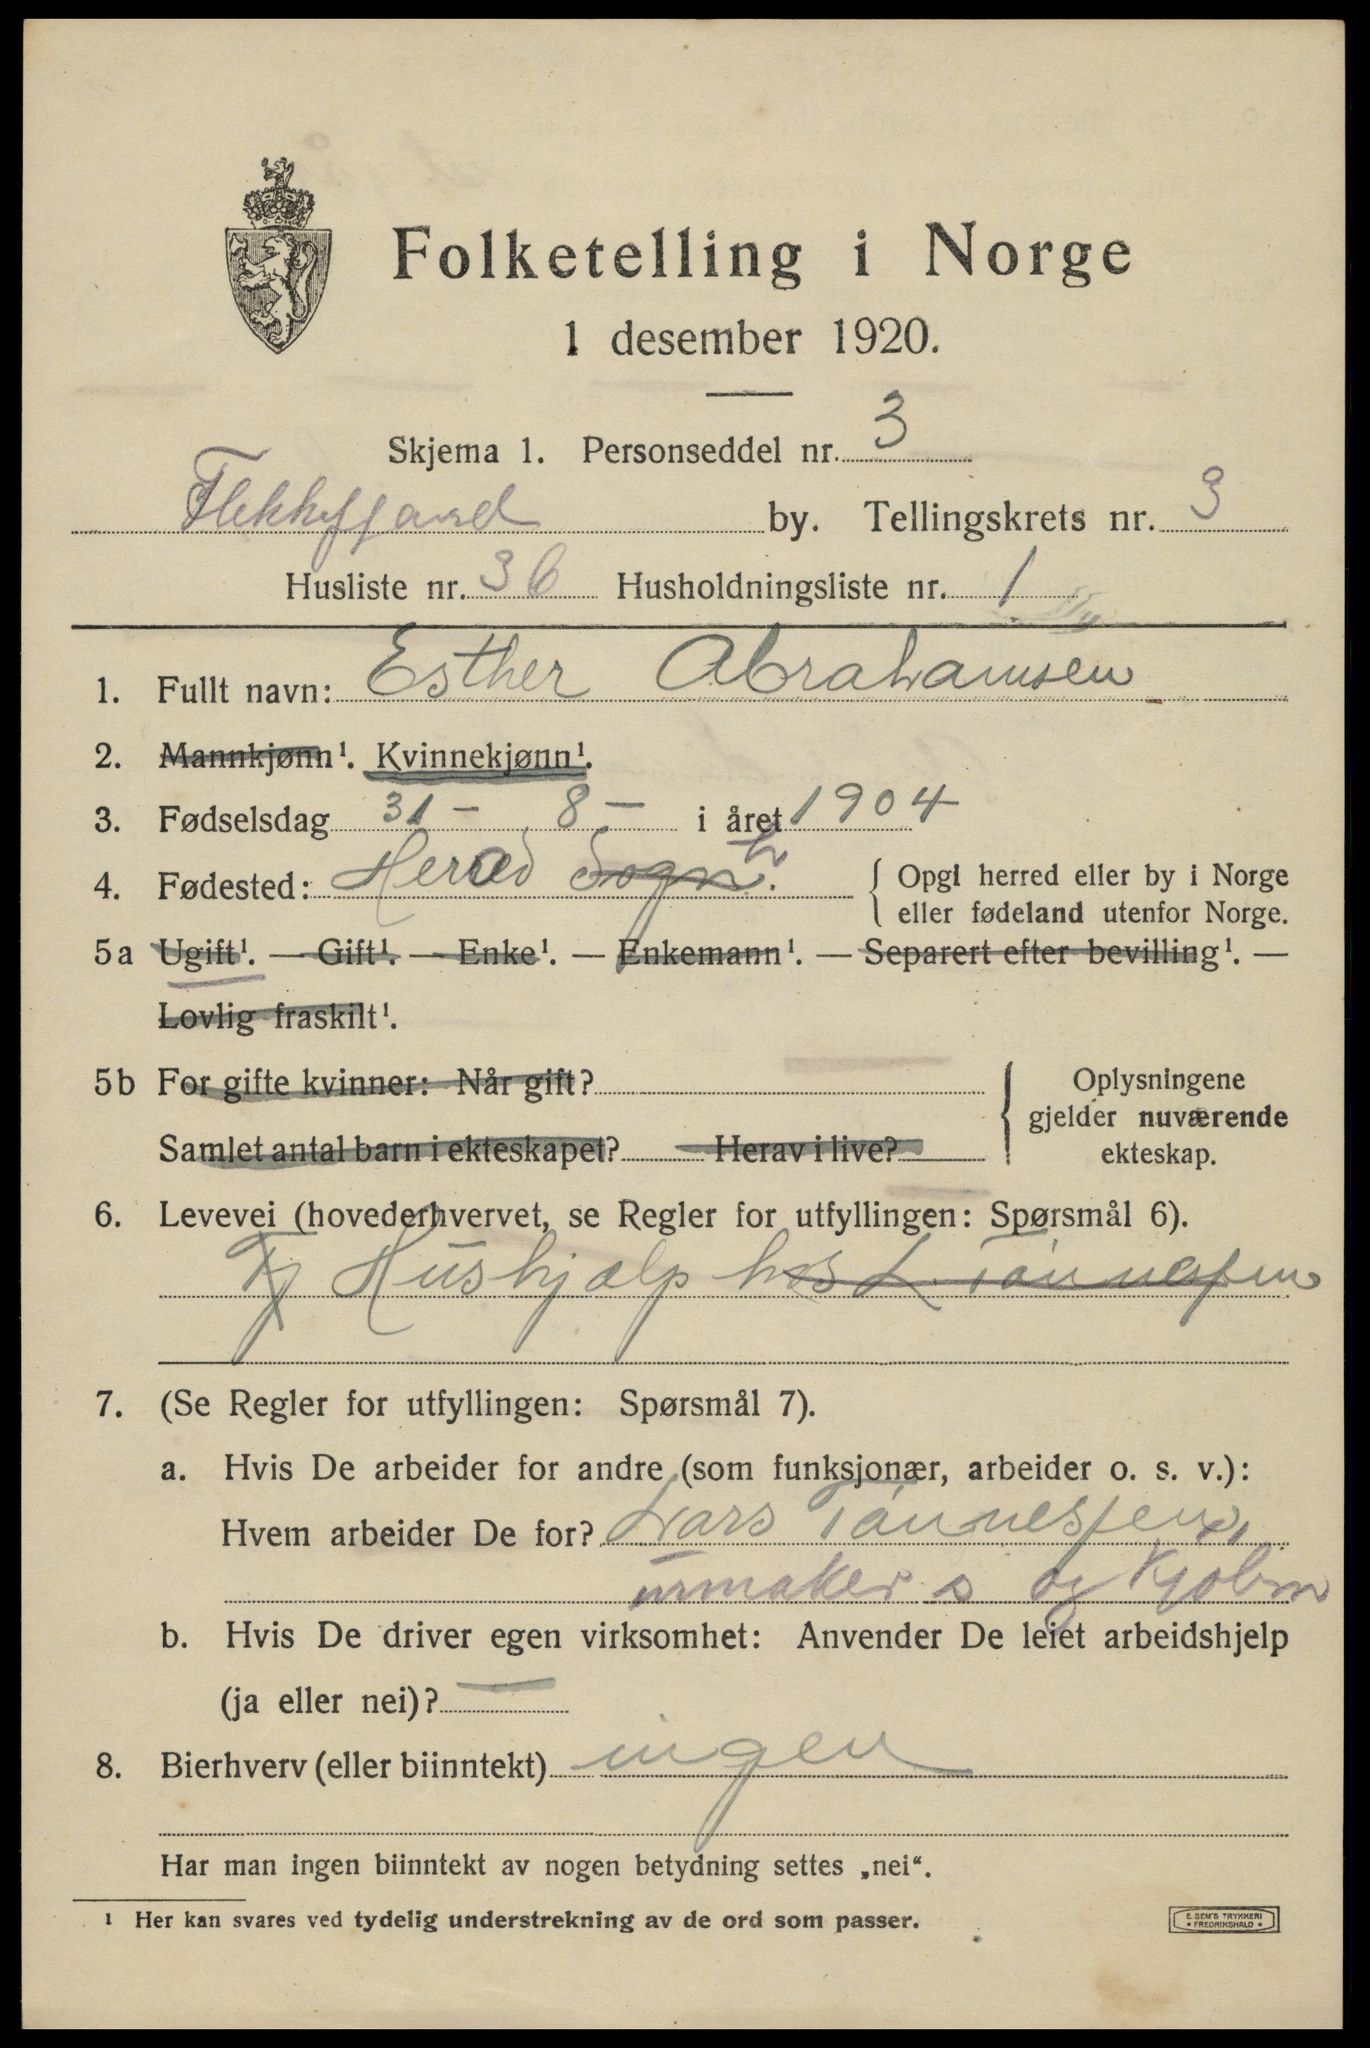 Folketelling i Norge
1 desember 1920.
Skjema 1. Personseddel nr. 3
Flekkefjord by. Tellingskrets nr. 3
Husliste nr. 36 Husholdningsliste nr. 1
1. Fullt navn: Esther Abrahamsen
2. Mannkjønn¹. Kvinnekjønn¹.
3. Fødselsdag 31 - 8 - i året 1904
4. Fødested: Herad Sogn. { Opgi herred eller by i Norge
eller fødeland utenfor Norge.
5a Ugift¹. — Gift¹. — Enke¹. — Enkemann¹. — Separert efter bevilling¹. —
Lovlig fraskilt¹.
5b For gifte kvinner: Når gift?
Samlet antal barn i ekteskapet? Herav i live?
Oplysningene
gjelder nuværende
ekteskap.
6. Levevei (hovederhvervet, se Regler for utfyllingen: Spørsmål 6).
Tj Hushjælp hos L. Tønnessen
7. (Se Regler for utfyllingen: Spørsmål 7).
a. Hvis De arbeider for andre (som funksjonær, arbeider o. s. v.):
Hvem arbeider De for? Lars Tønnessen,
urmaker s og Kjøbm
b. Hvis De driver egen virksomhet: Anvender De leiet arbeidshjelp
(ja eller nei)? —
8. Bierhverv (eller biinntekt) ingen
Har man ingen biinntekt av nogen betydning settes „nei“.
¹ Her kan svares ved tydelig understrekning av de ord som passer.
E. SEM'S TRYKKERI
• FREDRIKSHALD •